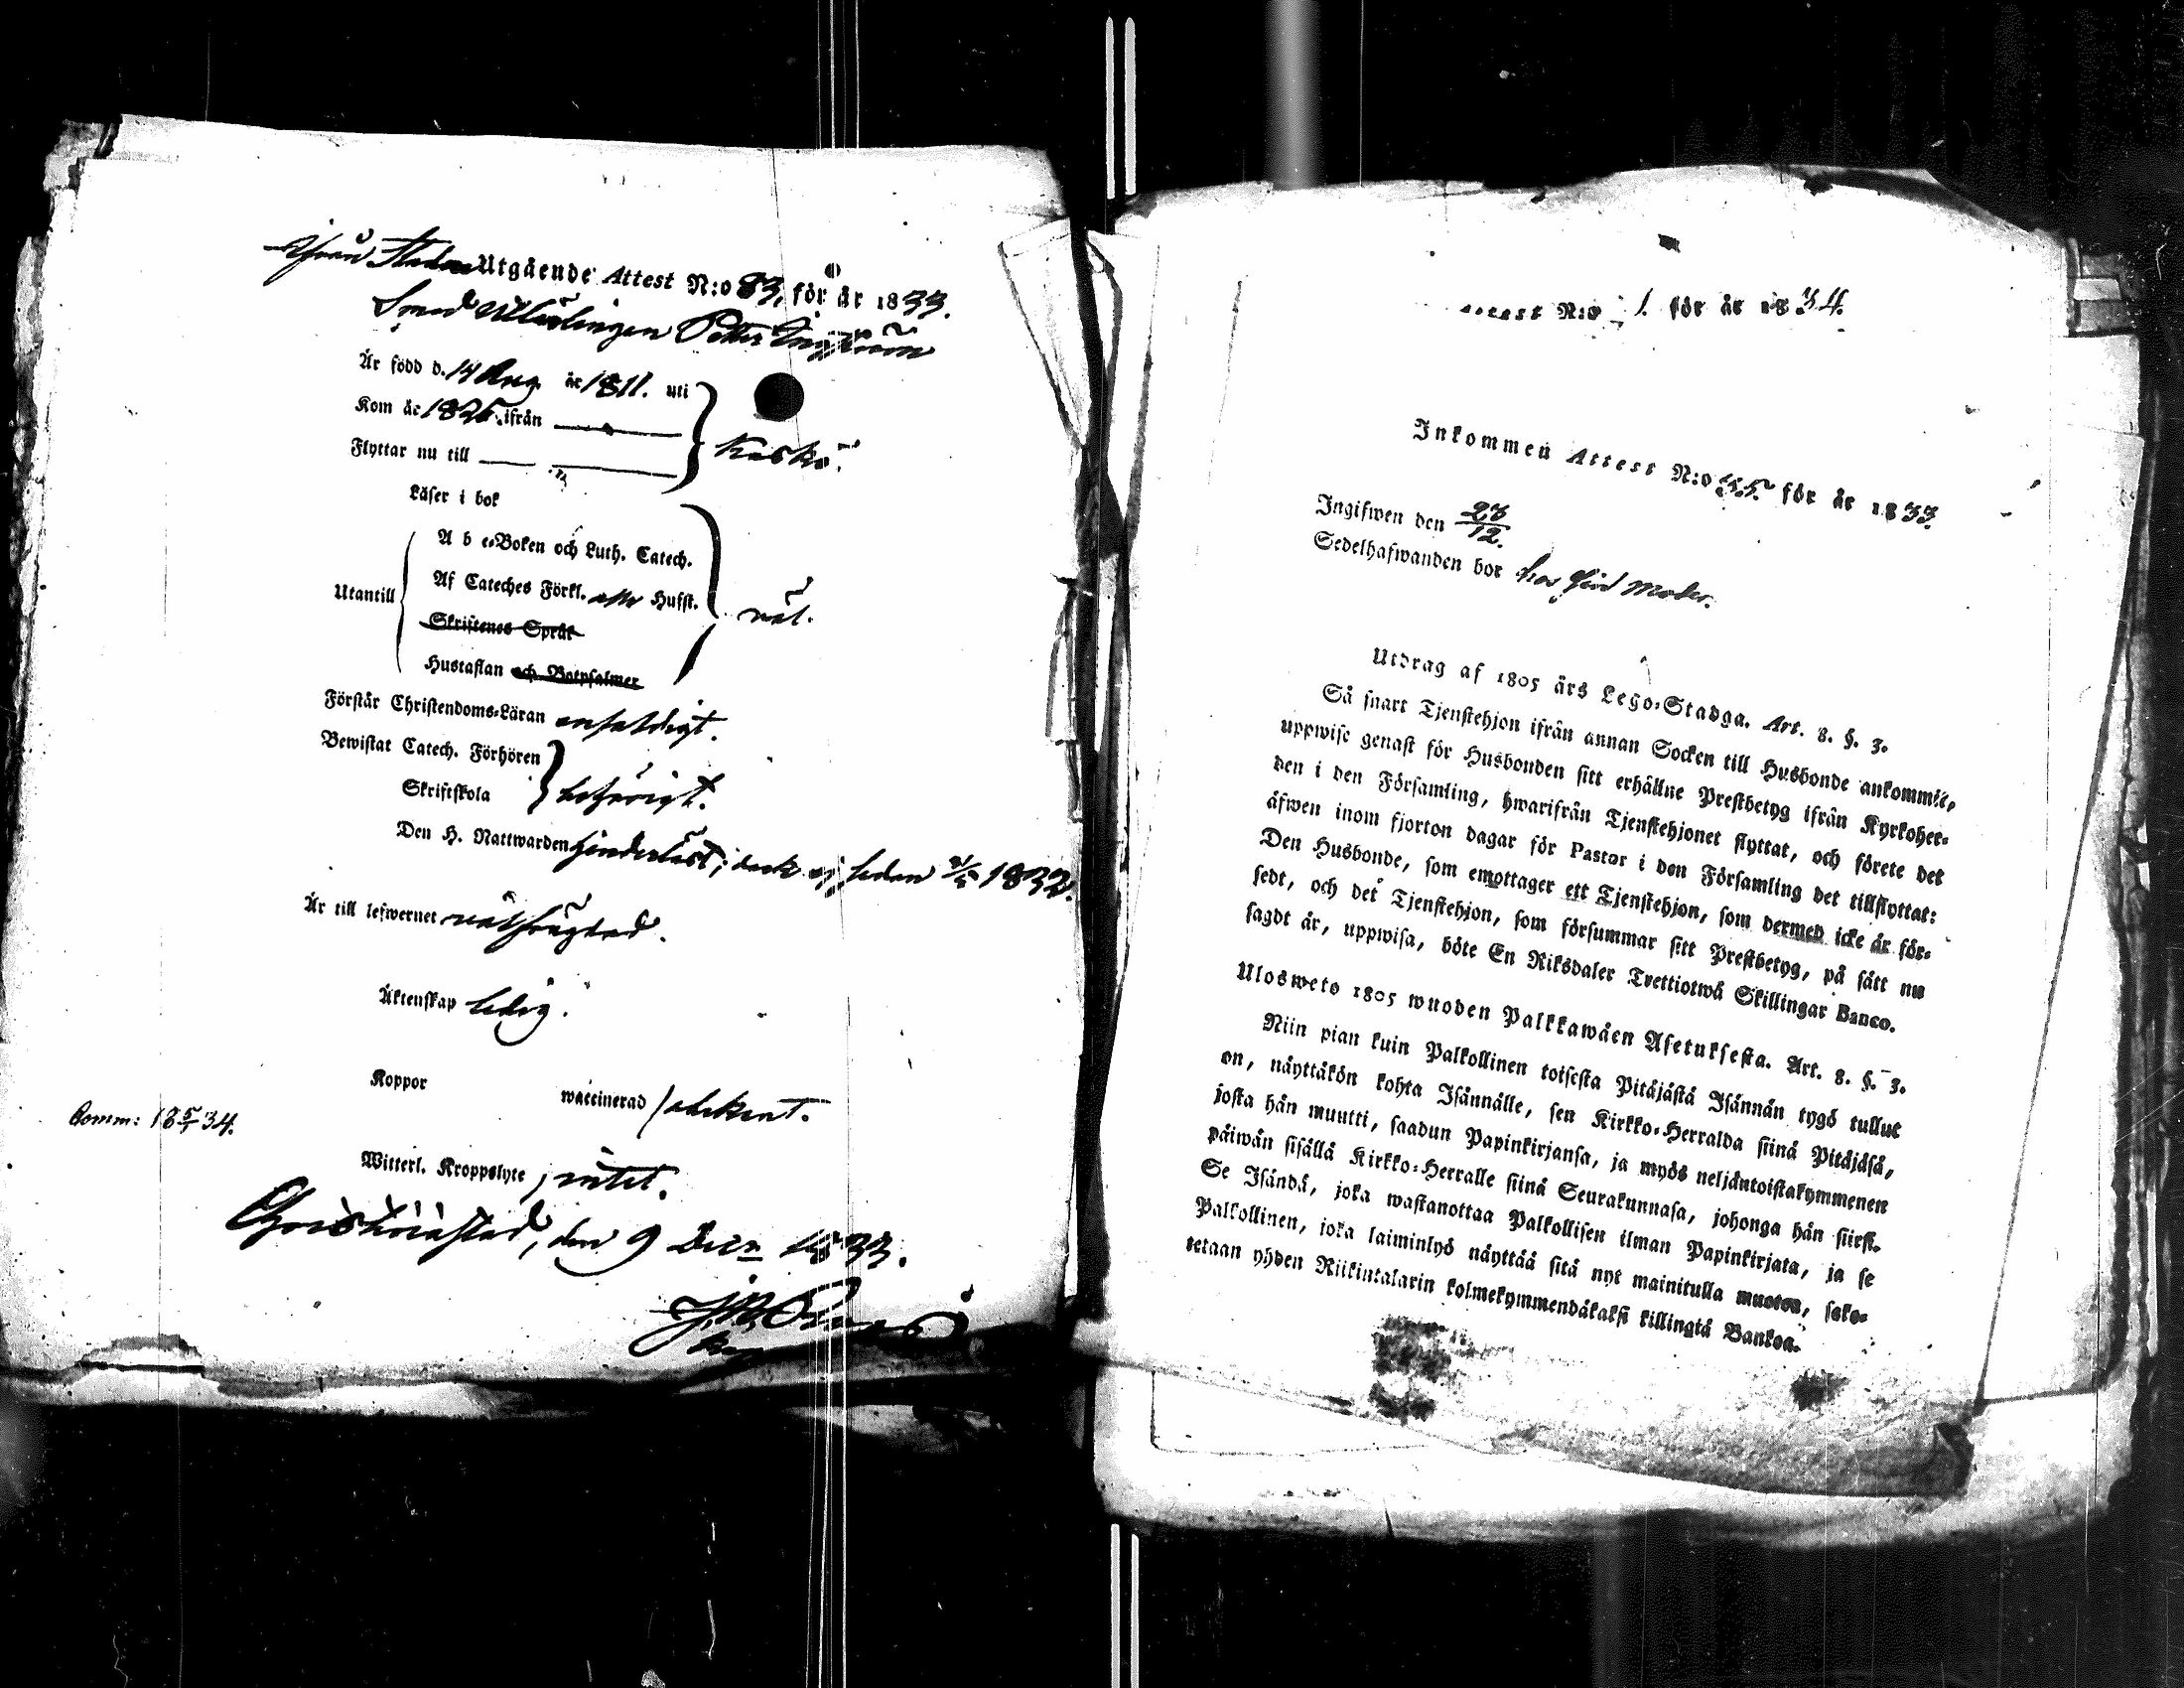 ifrån Staden Utgående Attest N:o 83, för år 1833.
Smed Petter Engström
Är född d. 14 Aug. år 1811. uti
Kom år 1825. ifrån
Flyttar nu till
Kaskö.
Läser i bok
A b c-Boken och Luth. Catech.
Af Cateches Förkl. Husst.
Utantill
väl.
Skriftenes Språk
Hustaflan och Botpsalmer
Förstår Christendoms-Läran enfaldigt.
Bewistat Catech. Förhören
Skriftskola
behörigt.
Den H. Nattwarden dock ej sedan 1832.
Är till lefwernet välfrägdad.
Äktenskap ledig.
Koppor waccinerad
Comm: 18 5/1 34.
Witterl. Kroppslyte, intet.
Christinæstad, den 9 Decr 1833.
Attest N:o 1 för år 1834.
Inkommen Attest N:o 55. för år 1833.
Ingifwen den 23/12.
Sedelhafwanden bor hos sin Moder.
Utdrag af 1805 års Lego-Stadga. Art. 8. §. 3.
Så snart Tjenstehjon ifrån annan Socken till Husbonde ankommit,
uppwise genast för Husbonden sitt erhållne Prestbetyg ifrån Kyrkoher-
den i den Församling, hwarifrån Tjenstehjonet flyttat, och förete det
äfwen inom fjorton dagar för Pastor i den Församling det tillflyttat:
Den Husbonde, som emottager ett Tjenstehjon, som dermed icke är för-
sedt, och det Tjenstehjon, som försummar sitt Prestbetyg, på sätt nu
sagdt är, uppwisa, böte En Riksdaler Trettiotwå Skillingar Banco.
Ulosweto 1805 wuoden Palkkawäen Asetuksesta. Art. 8. §. 3.
Niin pian kuin Palkollinen toisesta Pitäjästä Isännän tygö tullut
on, näyttäkön kohta Isännälle, sen Kirkko-Herralda siinä Pitäjäsä,
josta hän muutti, saadun Papinkirjansa, ja myös neljäntoistakymmenen
päiwän sisällä Kirkko-Herralle siinä Seurakunnasa, johonga hän siirsi.
Se Isändä, joka wastanottaa Palkollisen ilman Papinkirjata, ja se
Palkollinen, joka laiminlyö näyttää sitä nyt mainitulla muoton, sako-
tetaan yhden Riikintalarin kolmekymmendäkaksi killingiä Bankoa.